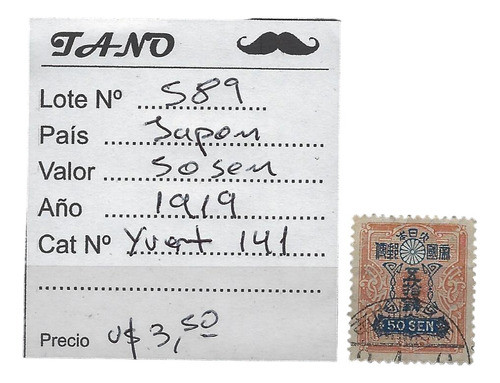 TANO
Lote Nº 589
País Japon
Valor 50 sen
Año 1919
Cat Nº Yvert 141
Precio U$ 3,50
大日本
帝國郵便
五拾錢
50 SEN